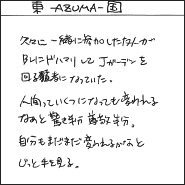 東 -AZUMA- 国
久々に一緒に参加した友人が
BLにドハマりして Jガーデンを
回る勇者になっていた。
人間っていくつになっても変われる
なあと 驚き半分 尊敬半分。
自分もまだまだ変われるかなと
じっと手を見る。